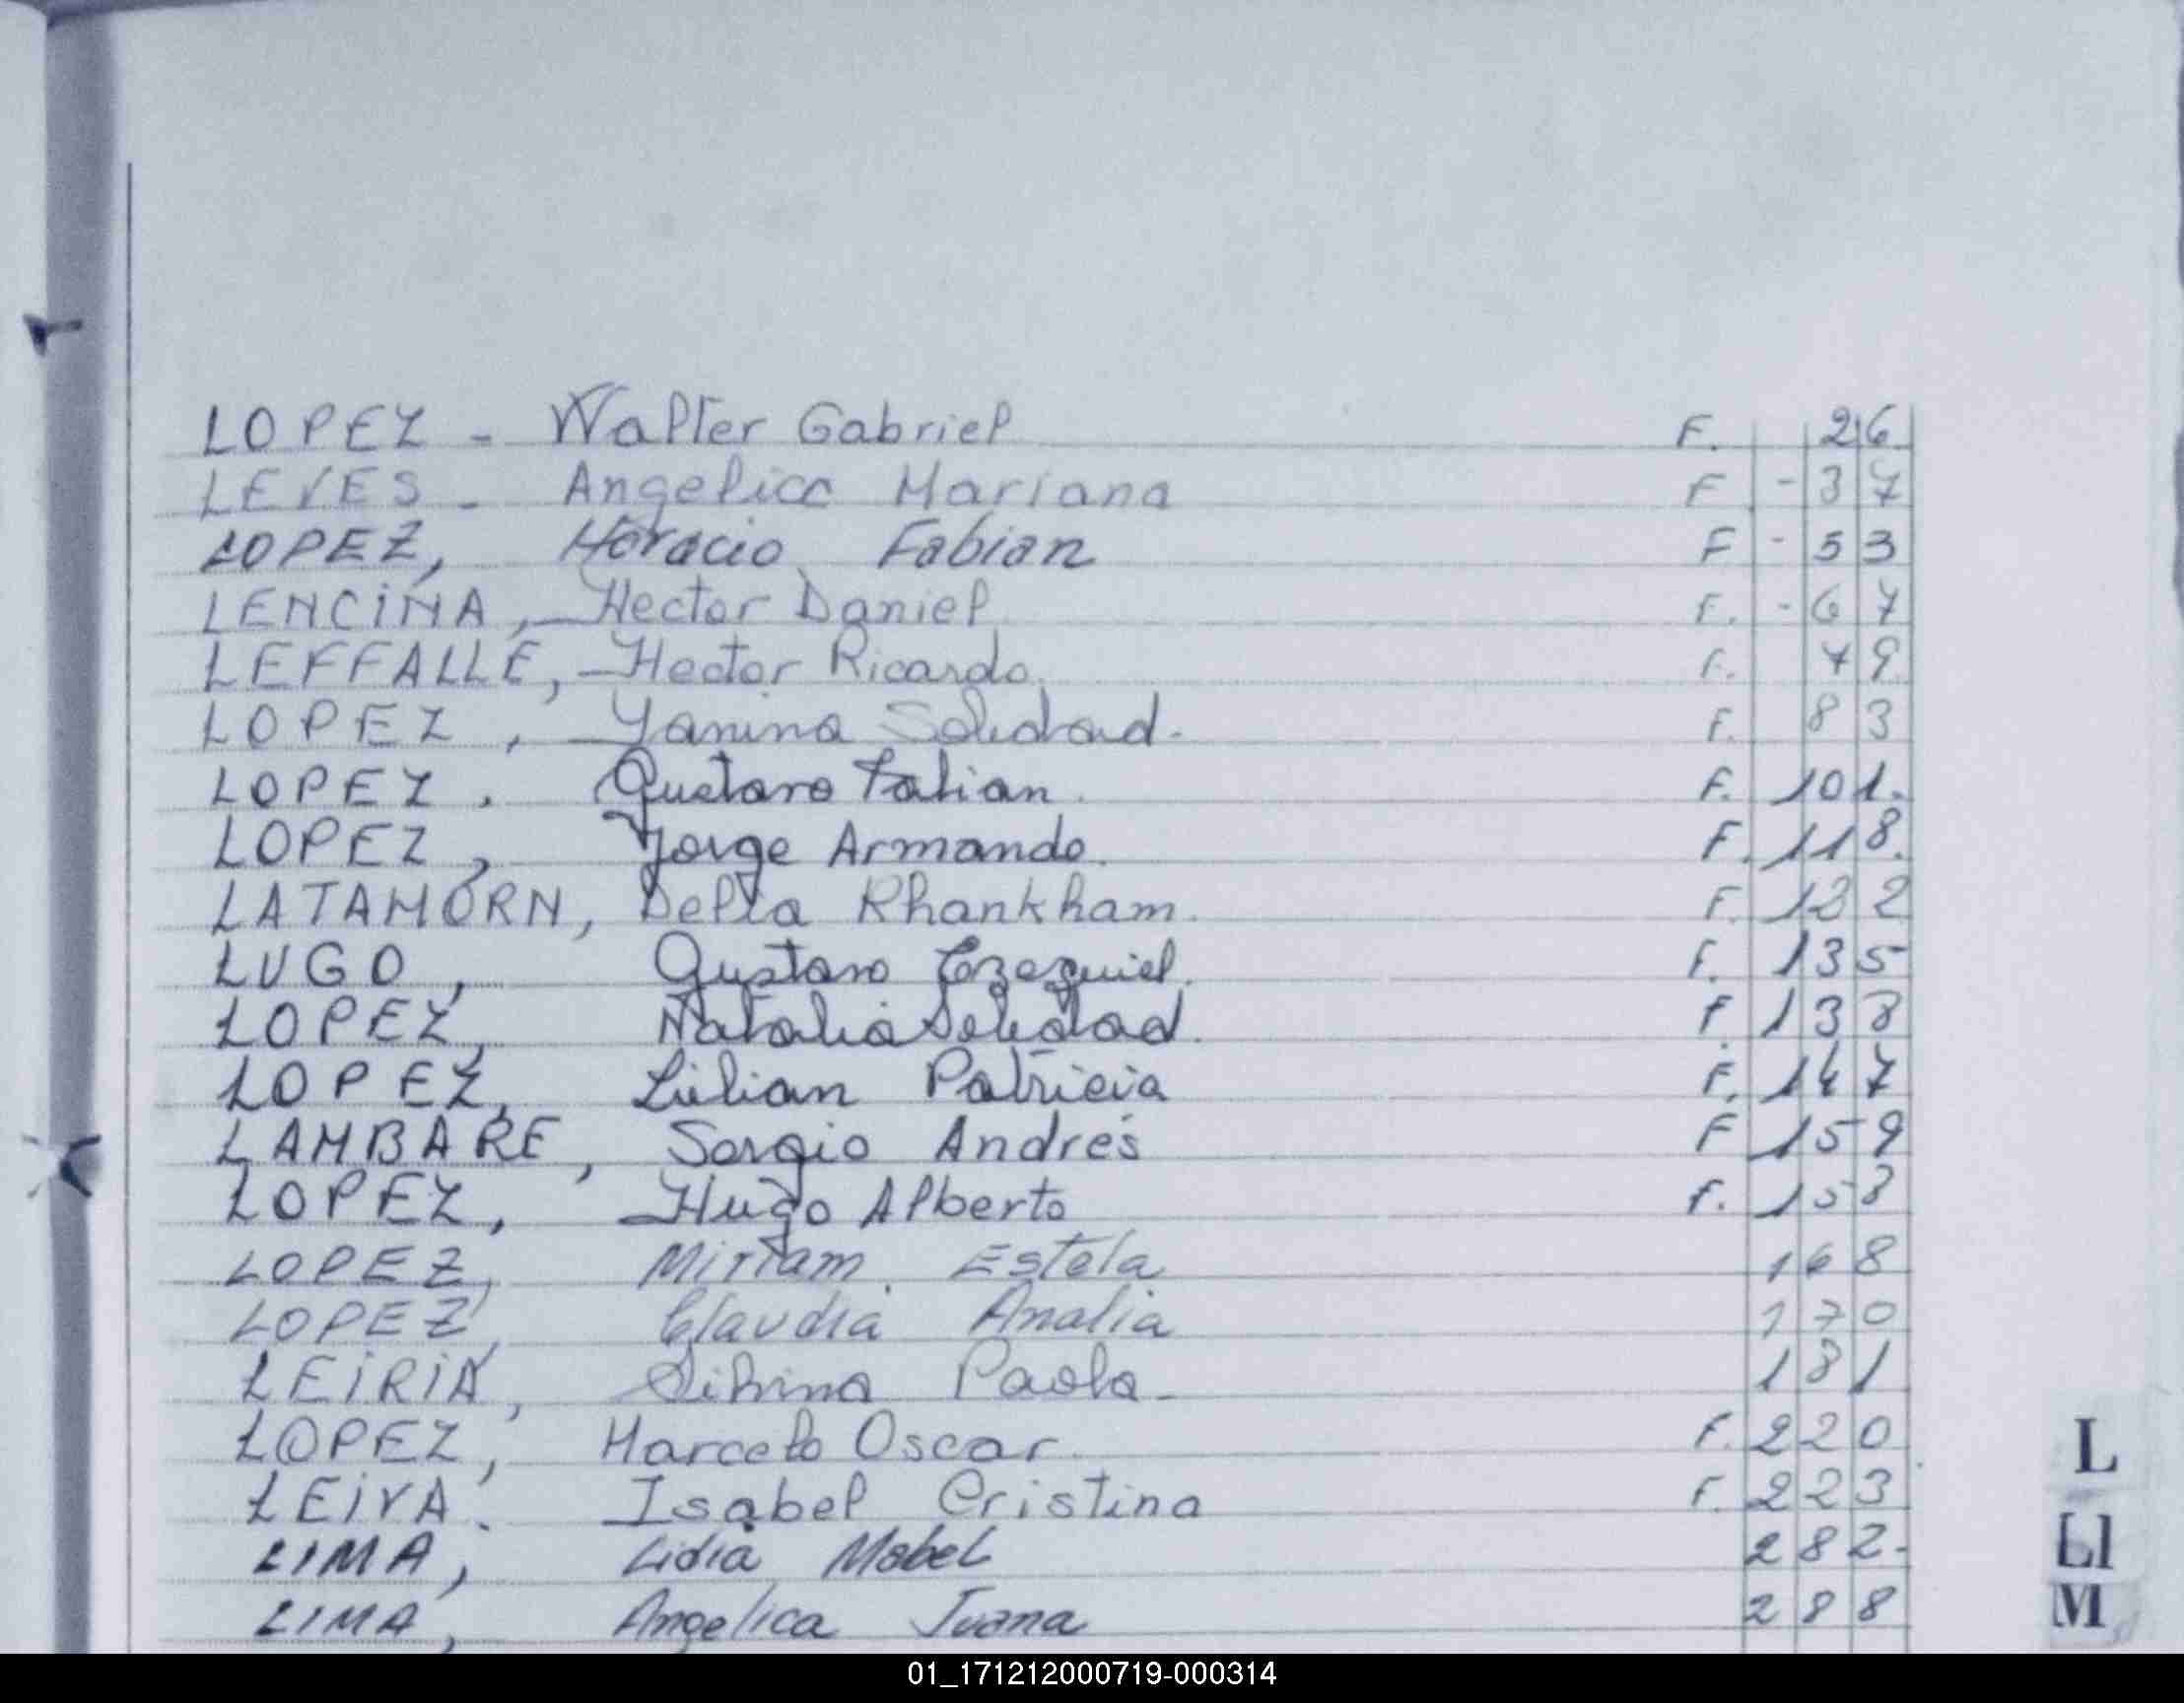 LOPEZ - Walter Gabriel F. 26
LEVES - Angelica Mariana F - 37
LOPEZ, Horacio Fabian F - 53
LENCINA, Hector Daniel F. - 67
LEFFALLE, Hector Ricardo F. 79
LOPEZ, Yanina Soledad. F. 83
LOPEZ. Gustavo Fabian. F. 101.
LOPEZ, Jorge Armando. F. 118.
LATAMORN, Delta Khankham. F. 132
LUGO, Gustavo Ezequiel. F. 135
LOPEZ, Natalia Soledad. F. 138
LOPEZ, Lilian Patricia F. 147
LAMBARE, Sergio Andrés F 159
LOPEZ, Hugo Alberto F. 158
LOPEZ, Miriam Estela 168
LOPEZ, Claudia Analia 170
LEIRIA, Silvina Paola - 181
LOPEZ, Marcelo Oscar F. 220
LEIVA. Isabel Cristina F. 223
LIMA, Lidia Mabel 282-
LIMA, Angelica Juana 288
L
LL
M
01_171212000719-000314